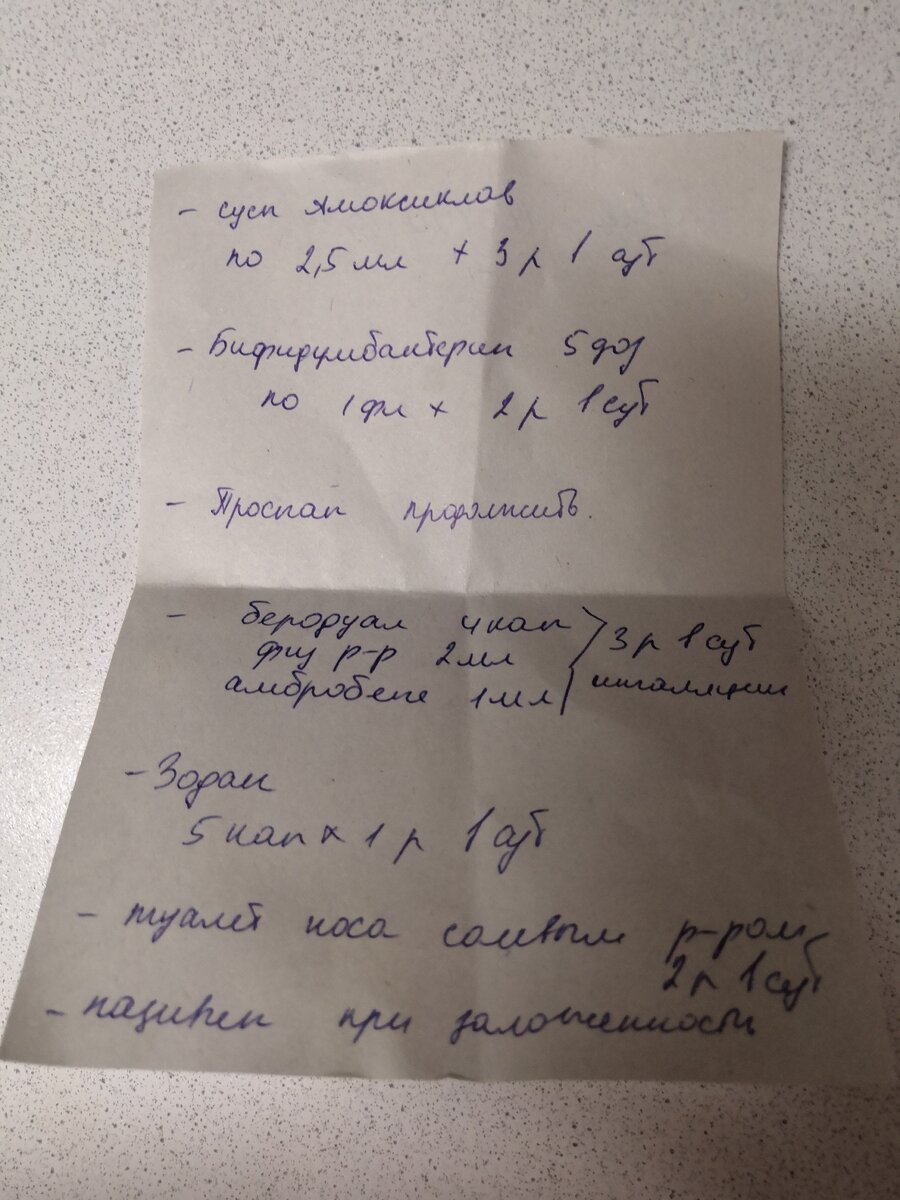 - сусп Амоксиклав
по 2,5 мл × 3 р / сут
- Бифидумбактерин 5 доз
по 1 фл × 2 р / сут
- Проспан продолжить.
- беродуал 4 кап
физ р-р 2 мл } 3 р / сут
амбробене 1 мл ингаляции
- Зодак
5 кап × 1 р / сут
- туалет носа солевым р-ром
2 р / сут
- називин при заложенности